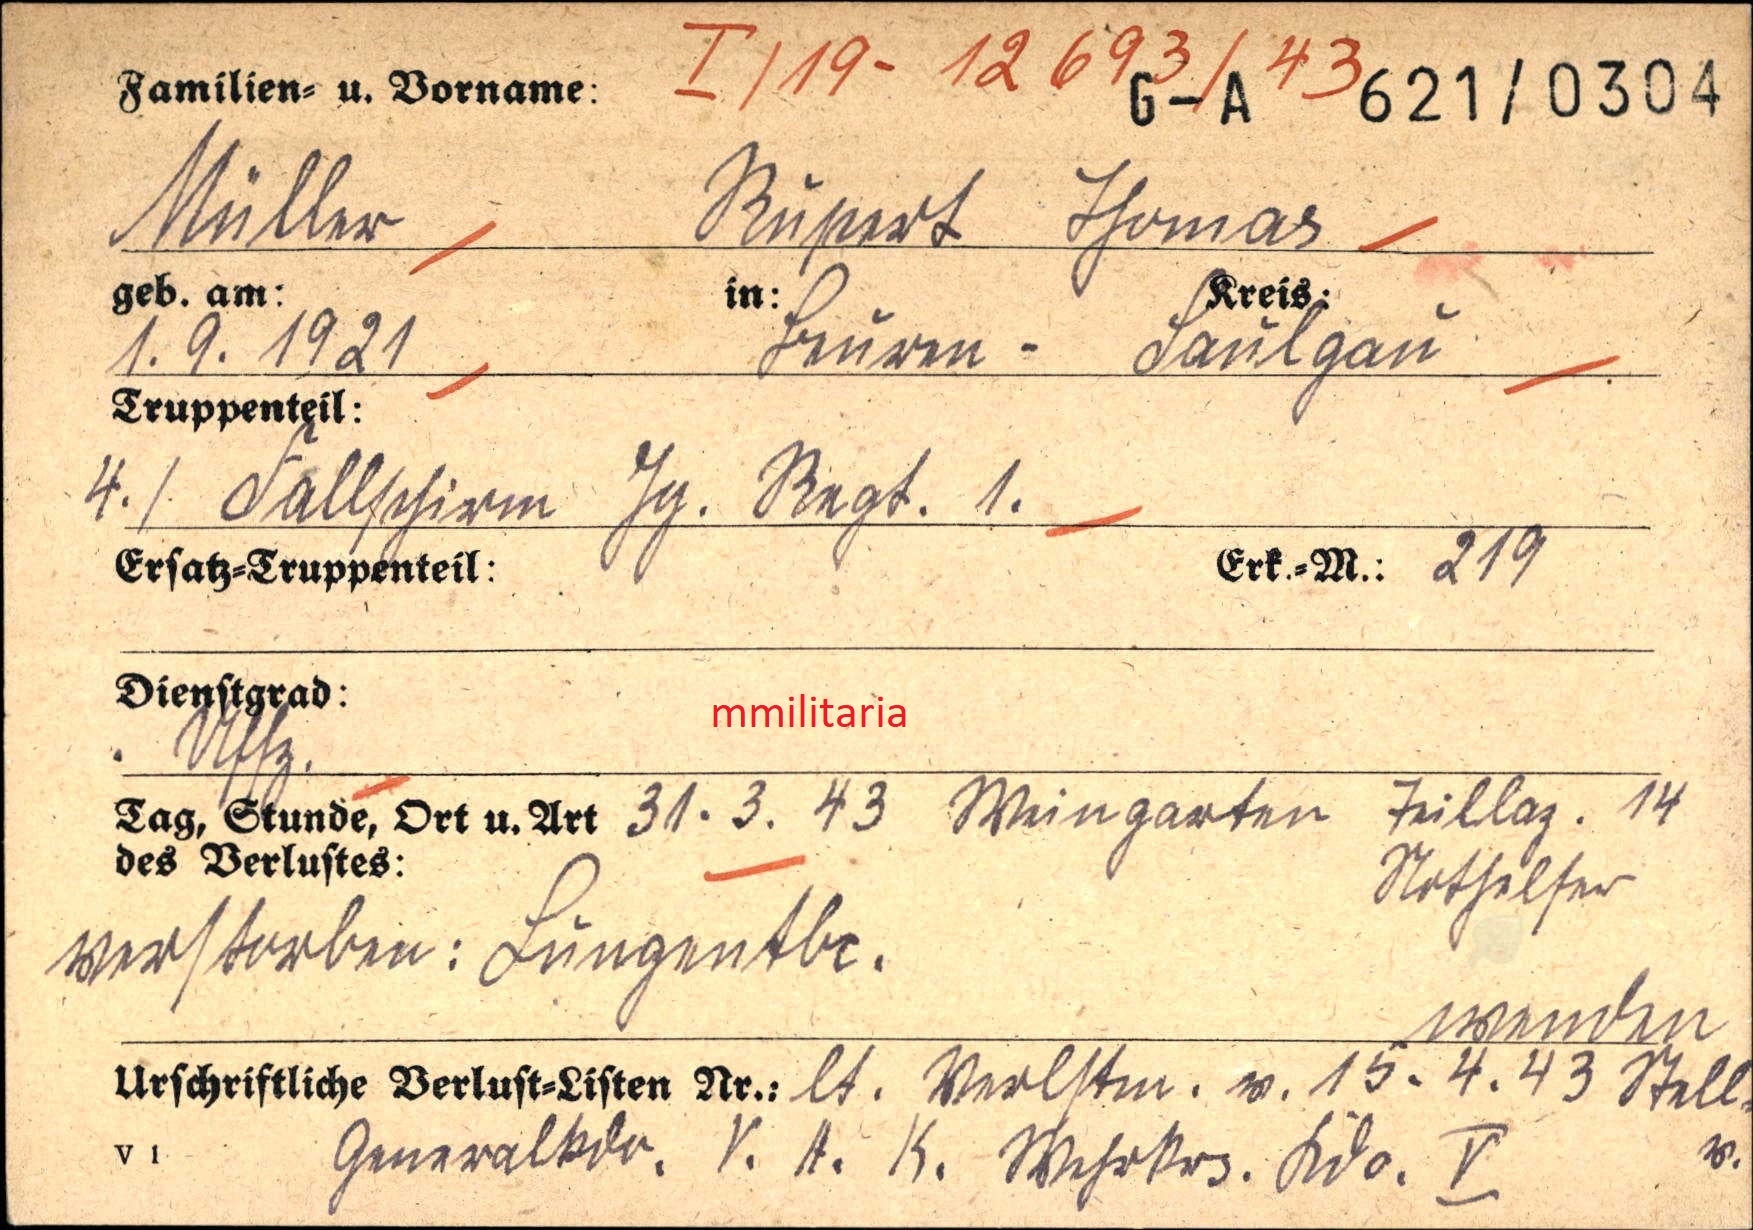 I/19- 12693/43
Familien- u. Vorname: G-A 621/0304
Müller Rupert Thomas
geb. am: in: Kreis:
1. 9. 1921 Beuren - Saulgau
Truppenteil:
4./ Fallschirm Jg. Regt. 1.
Ersatz-Truppenteil: Erk.-M.: 219
Dienstgrad:
Uffz.
mmilitaria
Tag, Stunde, Ort u. Art 31. 3. 43 Weingarten Teillaz. 14
des Verlustes: Nothelfer
verstorben: Lungentbc.
wenden
Urschriftliche Verlust-Listen Nr.: lt. Verlstm. v. 15. 4. 43 Stell.
V 1 Generalkdo. V. A. K. Wehrkrs. Kdo. V v.